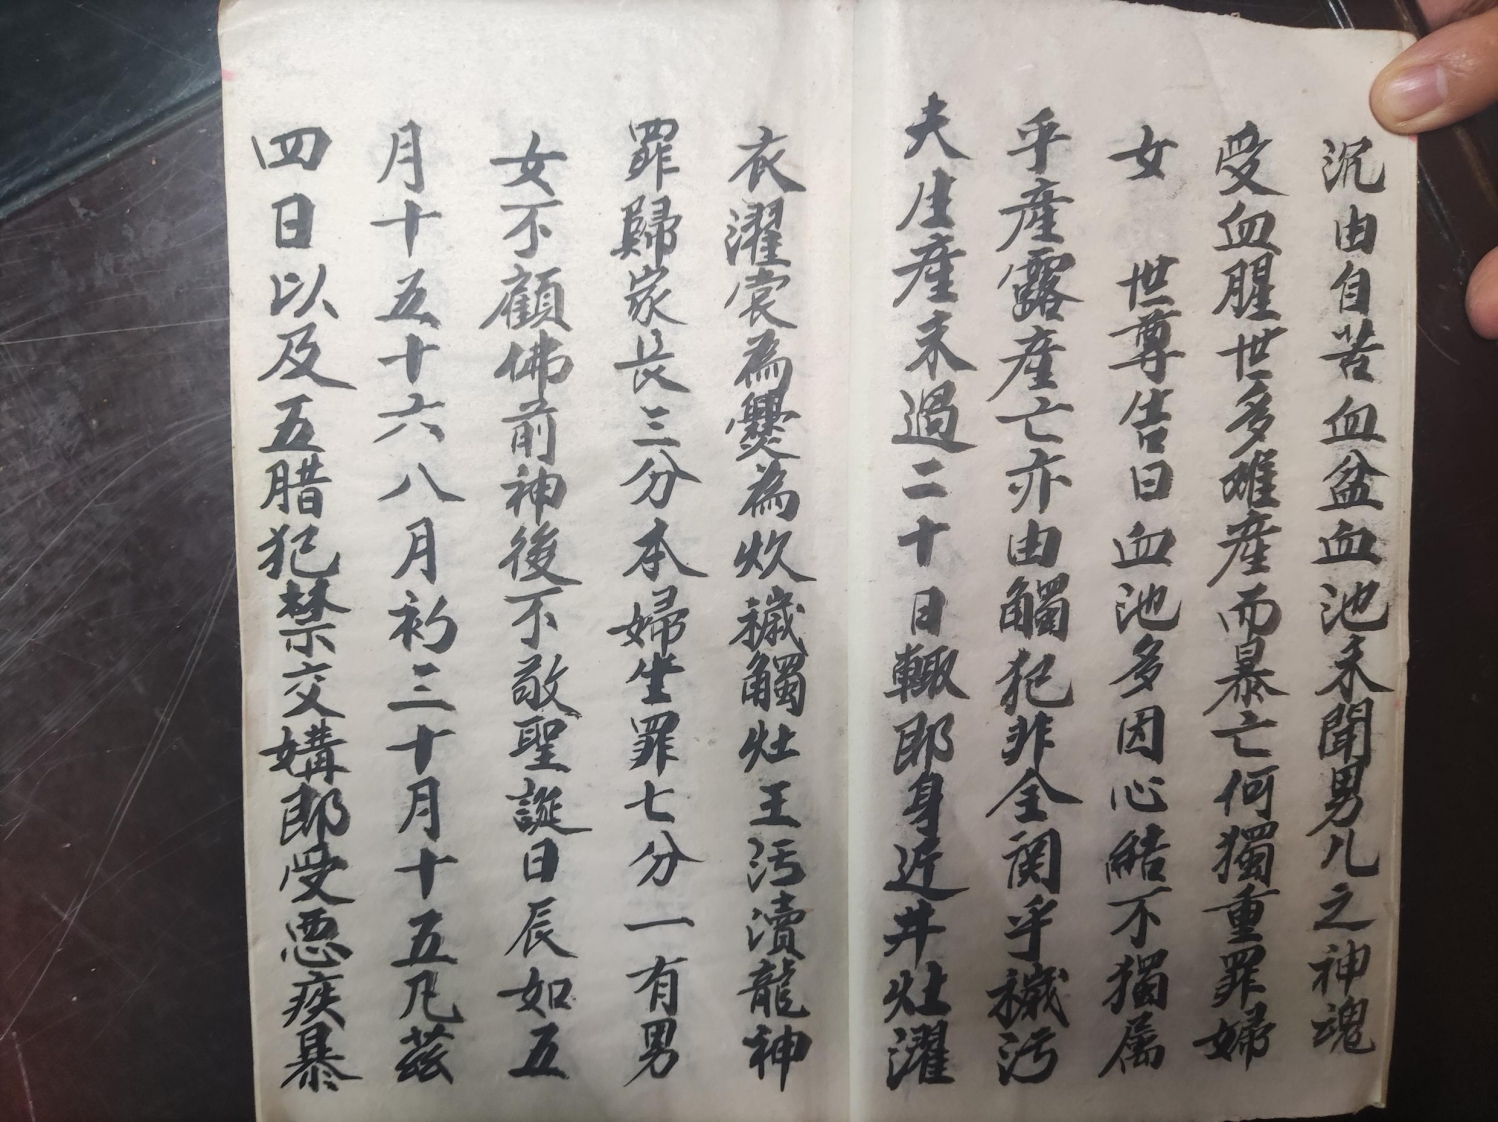 沉由自苦血盆血池未聞男儿之神魂
受血腥世多难產而暴亡何獨重罪婦
女　世尊告曰血池多因心結不獨属
乎產露產亡亦由觸犯非全関乎穢污
夫生產未過二十日輙郎身近井灶濯
衣濯裳為爨為炊穢觸灶王污瀆龍神
罪歸家長三分本婦坐罪七分一有男
女不顧佛前神後不敬聖誕日辰如五
月十五十六八月初三十月十五凡茲
四日以及五腊犯禁交媾郎受悪疾暴